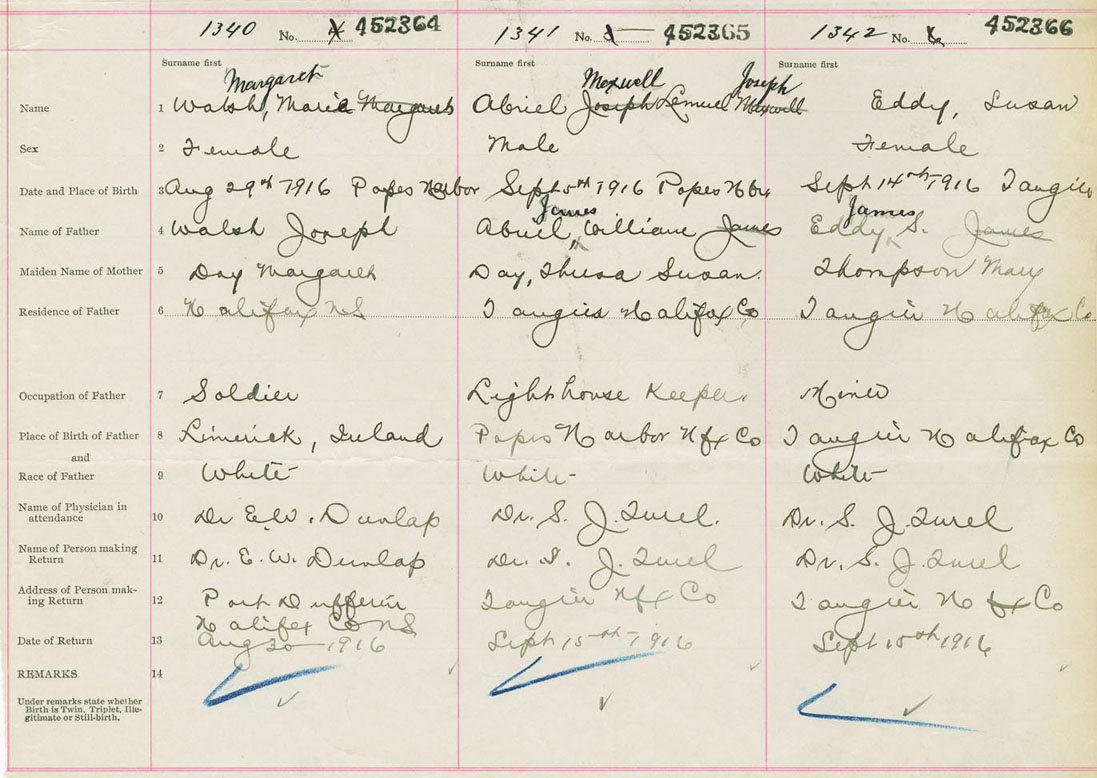 1340 No. 452364 1341 No. 452365 1342 No. 452366
Surname first Surname first Surname first
Margaret Maxwell Joseph
Name 1 Walsh, Maria Margaret Abriel Joseph Lemuel Maxwell Eddy, Susan
Sex 2 Female Male Female
Date and Place of Birth 3 Aug 29th 1916 Popes Harbor Sept 5th 1916 Popes Hbr Sept 14th 1916 Tangier
James James
Name of Father 4 Walsh Joseph Abriel, William James Eddy S. James
Maiden Name of Mother 5 Day Margaret Day, Susan Thompson Mary
Residence of Father 6 Halifax NS Tangier Halifax Co Tangier Halifax Co
Occupation of Father 7 Soldier Lighthouse Keeper. Miner
Place of Birth of Father 8 Limerick, Ireland Popes Harbor Hfx Co Tangier Halifax Co
and
Race of Father 9 White White White
Name of Physician in
attendance 10 Dr E.W. Dunlap Dr. S. J. Turel. Dr. S. J. Turel
Name of Person making
Return 11 Dr. E. W. Dunlap Dr. S. J. Turel Dr. S. J. Turel
Address of Person mak-
ing Return 12 Port Dufferin Tangier Hfx Co Tangier Hfx Co
Halifax Co NS
Date of Return 13 Aug 30 1916 Sept 15th 1916 Sept 15th 1916
REMARKS 14
Under remarks state whether
Birth is Twin, Triplet, Ille-
gitimate or Still-birth.